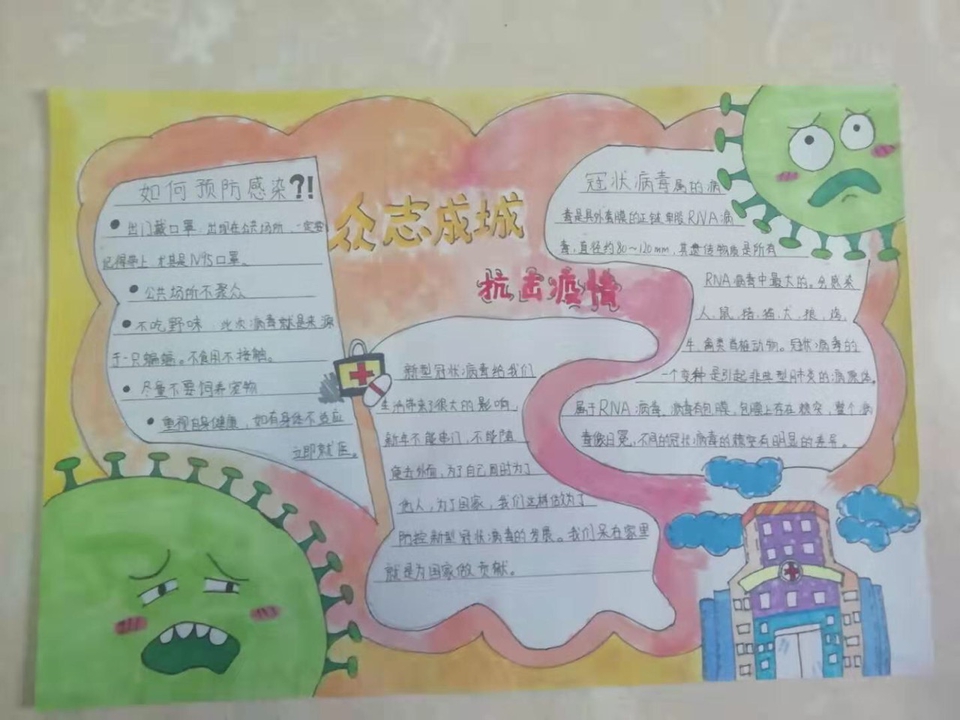 众志成城
抗击疫情
如何预防感染?!
出门戴口罩,出现在公共场所,一定要
记得带上,尤其是N95口罩。
公共场所不聚众
不吃野味,此次病毒就是来源
于一只蝙蝠。不食用不接触。
尽量不要饲养宠物
重视自身健康,如有身体不适应
立即就医。
新型冠状病毒给我们
生活带来了很大的影响,
新年不能串门,不能随
便去外面,为了自己同时为了
他人,为了国家,我们这样做为了
防控新型冠状病毒的发展。我们呆在家里
就是为国家做贡献。
冠状病毒属的病
毒是具外套膜的正链单股RNA病
毒,直径约80~120mm,其遗传物质是所有
RNA病毒中最大的。只感染
人、鼠、猪、猫、犬、狼、鸡、
牛、禽类脊椎动物。冠状病毒的
一个变种是引起非典型肺炎的病原体。
属于RNA病毒。病毒有包膜,包膜上存在棘突,整个病
毒像日冕,不同的冠状病毒的棘突有明显的差异。